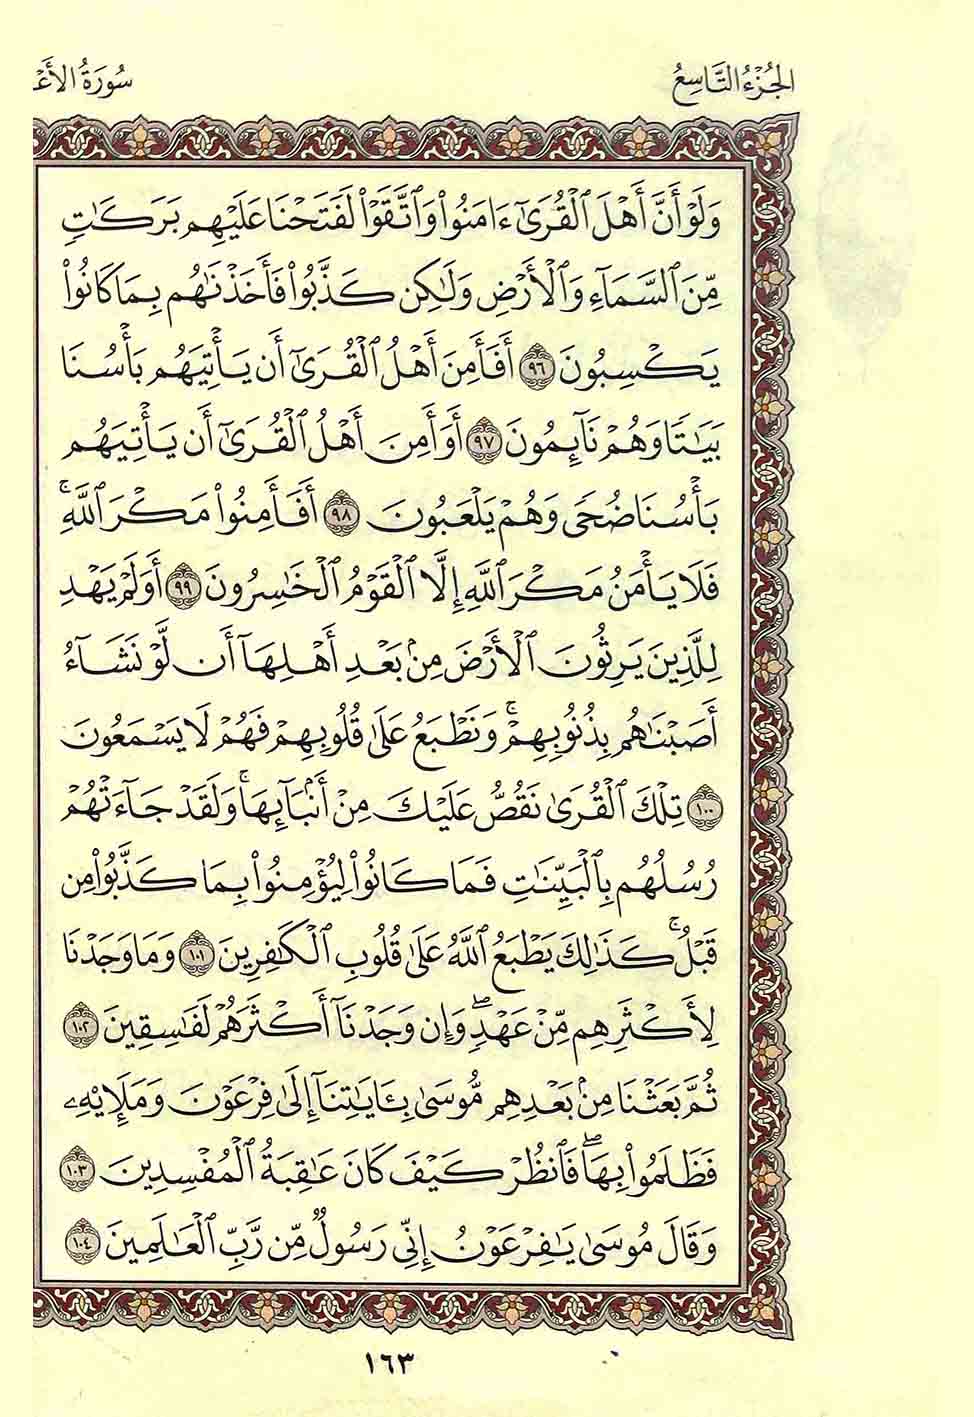 الجُزْءُ التَّاسِعُ
سُورَةُ الأَعْ
وَلَوْ أَنَّ أَهْلَ ٱلْقُرَىٰٓ ءَامَنُوا۟ وَٱتَّقَوْا۟ لَفَتَحْنَا عَلَيْهِم بَرَكَـٰتٍ
مِّنَ ٱلسَّمَآءِ وَٱلْأَرْضِ وَلَـٰكِن كَذَّبُوا۟ فَأَخَذْنَـٰهُم بِمَا كَانُوا۟
يَكْسِبُونَ ٩٦ أَفَأَمِنَ أَهْلُ ٱلْقُرَىٰٓ أَن يَأْتِيَهُم بَأْسُنَا
بَيَـٰتًا وَهُمْ نَآئِمُونَ ٩٧ أَوَأَمِنَ أَهْلُ ٱلْقُرَىٰٓ أَن يَأْتِيَهُم
بَأْسُنَا ضُحًى وَهُمْ يَلْعَبُونَ ٩٨ أَفَأَمِنُوا۟ مَكْرَ ٱللَّهِ ۚ
فَلَا يَأْمَنُ مَكْرَ ٱللَّهِ إِلَّا ٱلْقَوْمُ ٱلْخَـٰسِرُونَ ٩٩ أَوَلَمْ يَهْدِ
لِلَّذِينَ يَرِثُونَ ٱلْأَرْضَ مِنۢ بَعْدِ أَهْلِهَآ أَن لَّوْ نَشَآءُ
أَصَبْنَـٰهُم بِذُنُوبِهِمْ ۚ وَنَطْبَعُ عَلَىٰ قُلُوبِهِمْ فَهُمْ لَا يَسْمَعُونَ
١٠٠ تِلْكَ ٱلْقُرَىٰ نَقُصُّ عَلَيْكَ مِنْ أَنۢبَآئِهَا ۚ وَلَقَدْ جَآءَتْهُمْ
رُسُلُهُم بِٱلْبَيِّنَـٰتِ فَمَا كَانُوا۟ لِيُؤْمِنُوا۟ بِمَا كَذَّبُوا۟ مِن
قَبْلُ ۚ كَذَٰلِكَ يَطْبَعُ ٱللَّهُ عَلَىٰ قُلُوبِ ٱلْكَـٰفِرِينَ ١٠١ وَمَا وَجَدْنَا
لِأَكْثَرِهِم مِّنْ عَهْدٍ ۖ وَإِن وَجَدْنَآ أَكْثَرَهُمْ لَفَـٰسِقِينَ ١٠٢
ثُمَّ بَعَثْنَا مِنۢ بَعْدِهِم مُّوسَىٰ بِـَٔايَـٰتِنَآ إِلَىٰ فِرْعَوْنَ وَمَلَإِي۟هِۦ
فَظَلَمُوا۟ بِهَا ۖ فَٱنظُرْ كَيْفَ كَانَ عَـٰقِبَةُ ٱلْمُفْسِدِينَ ١٠٣
وَقَالَ مُوسَىٰ يَـٰفِرْعَوْنُ إِنِّى رَسُولٌ مِّن رَّبِّ ٱلْعَـٰلَمِينَ ١٠٤
١٦٣